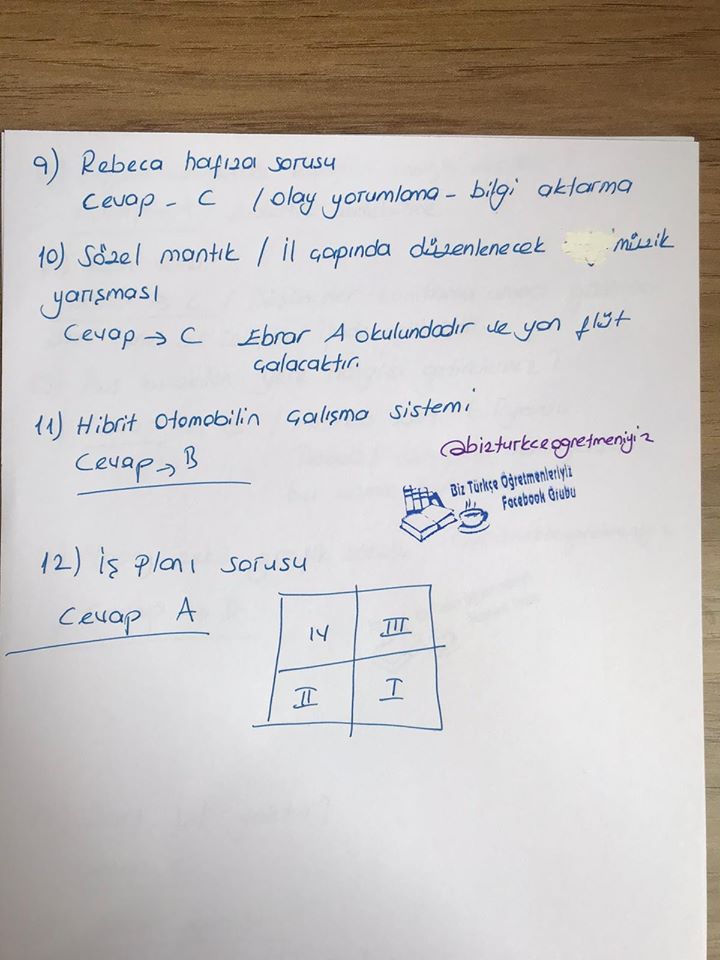 9) Rebeca hafıza sorusu
Cevap - C / olay yorumlama - bilgi aktarma
10) Sözel mantık / İl çapında düzenlenecek müzik
yarışması
Cevap → C Ebrar A okulundadır ve yan flüt
çalacaktır.
11) Hibrit otomobilin çalışma sistemi
Cevap → B
@bizturkceogretmeniyiz
Biz Türkçe Öğretmenleriyiz
Facebook Grubu
12) İş planı sorusu
Cevap A
IV III
II I